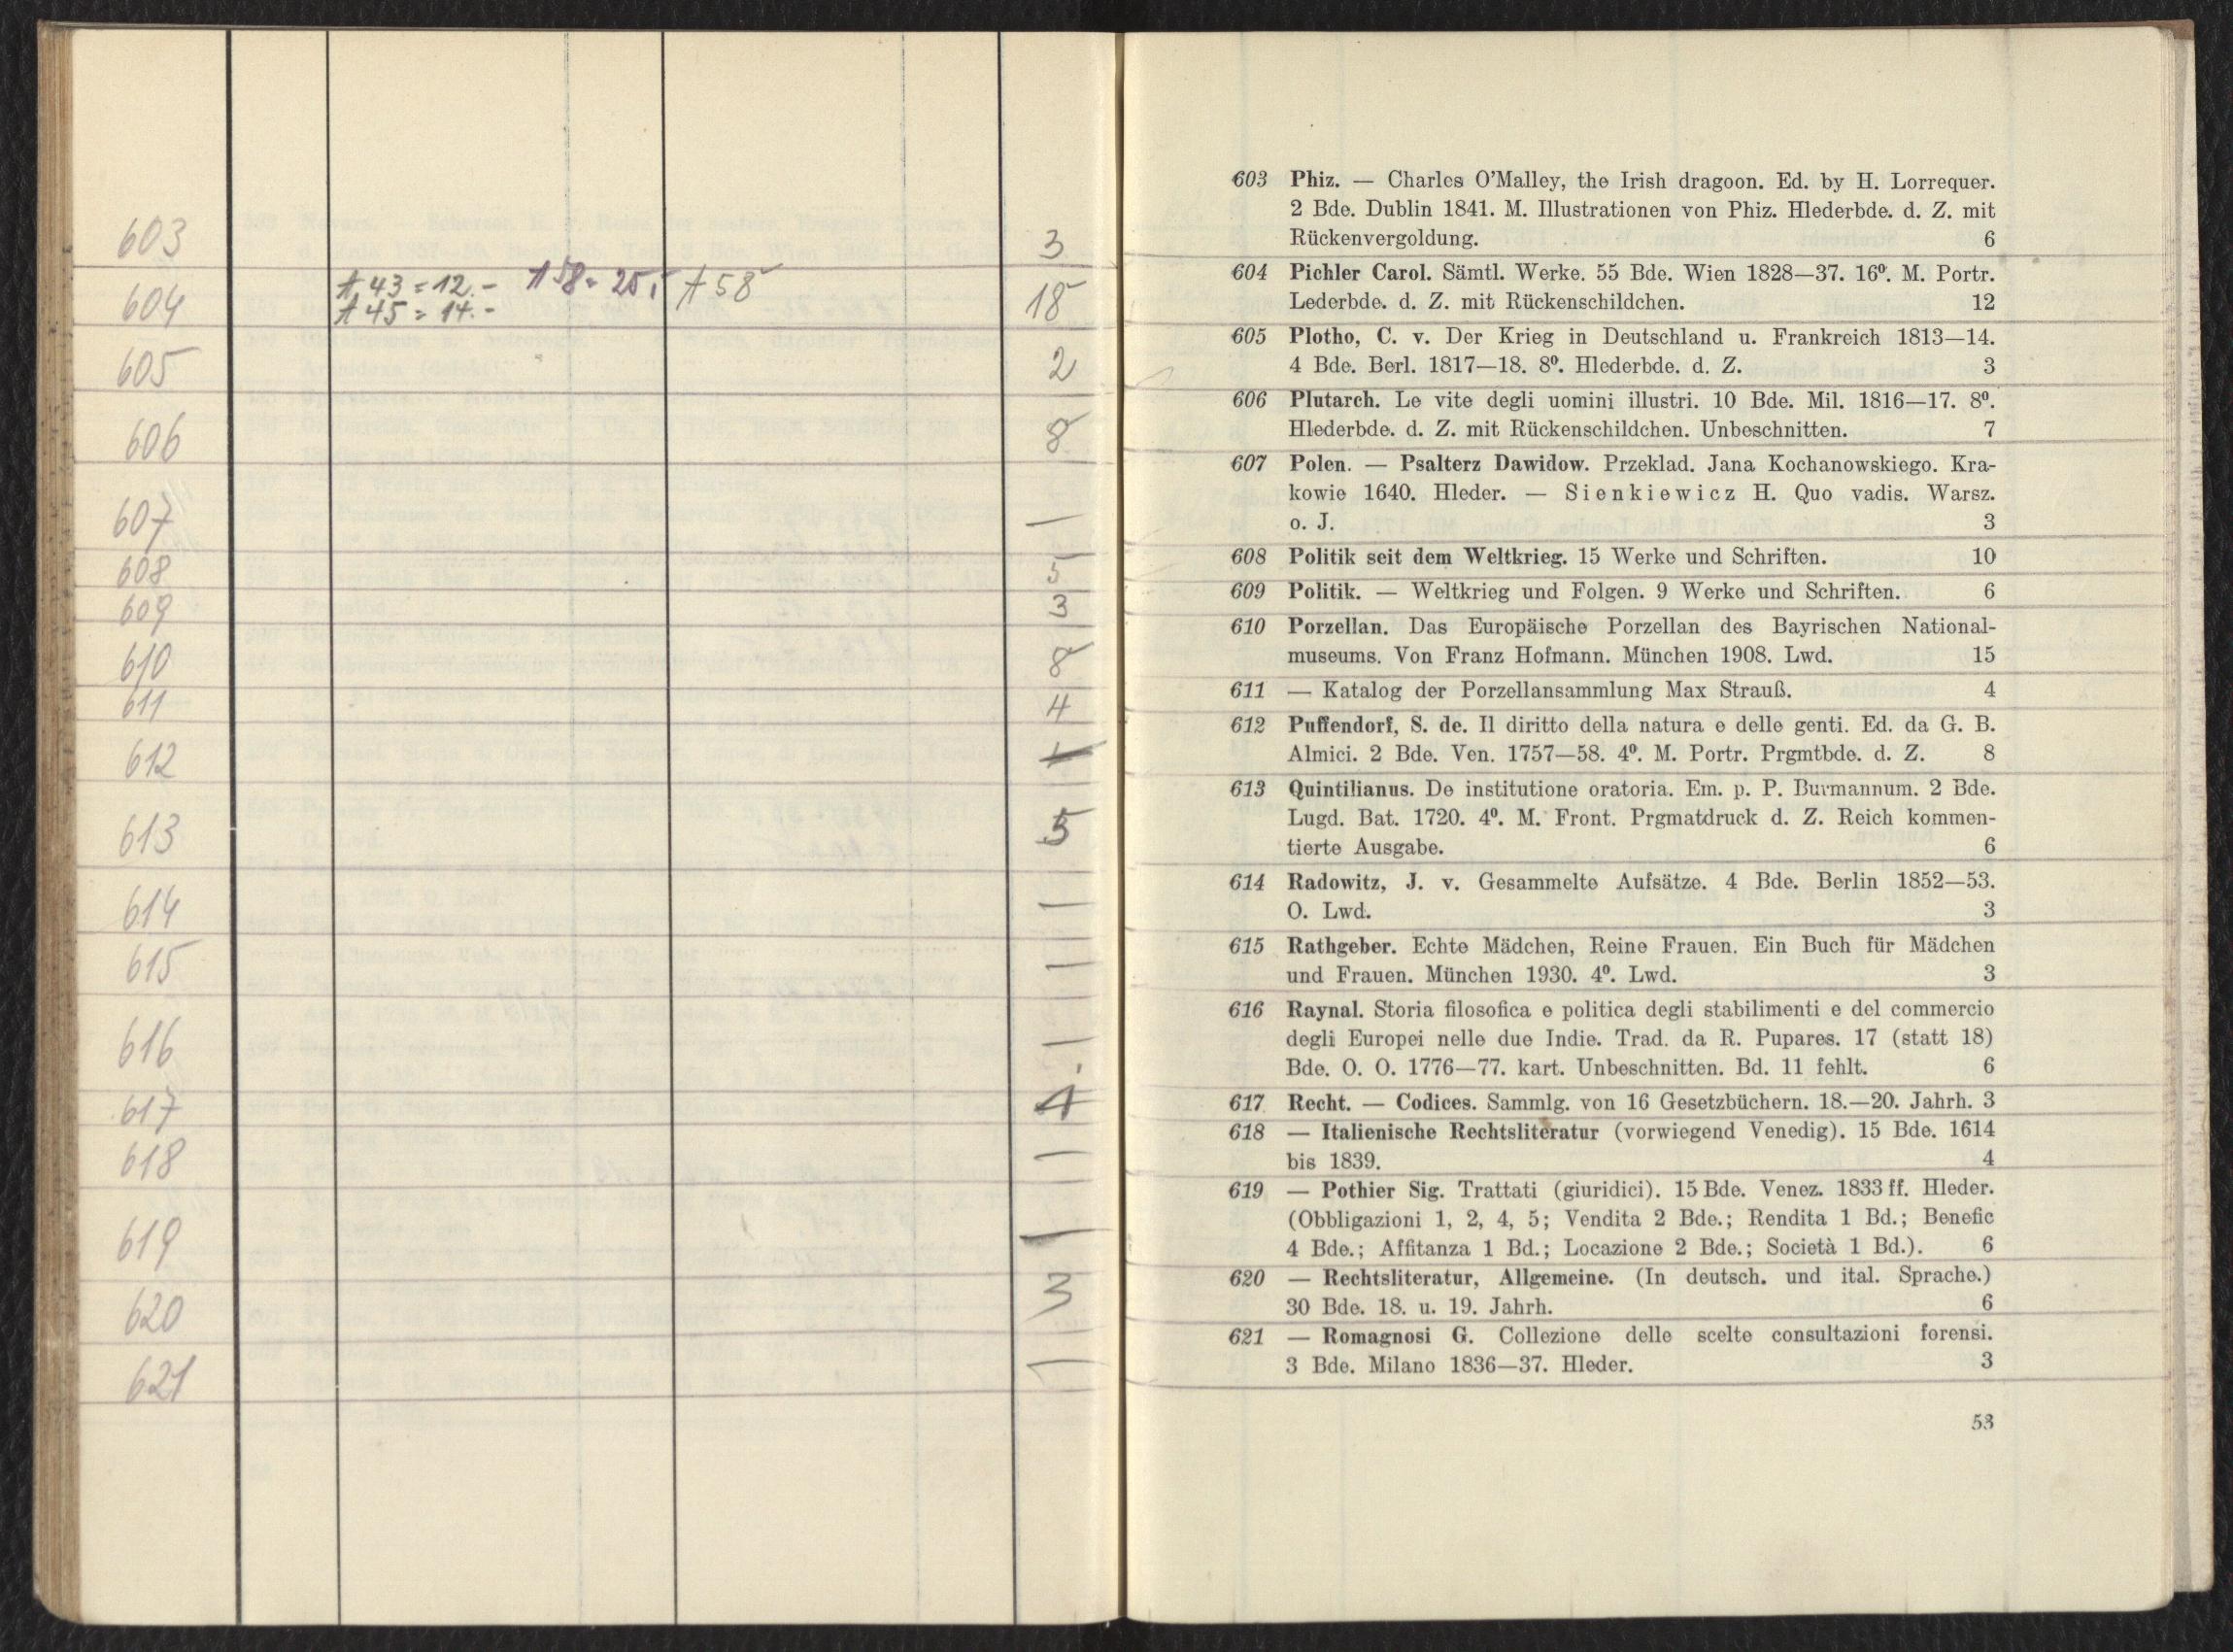 603 3
604 A 43 = 12.- A 58 = 25,- A 58 18
A 45 = 14.-
605 2
606 8
607 —
608 5
609 3
610 8
611 4
612
613 5
614 —
615 —
616 —
617 4
618 —
619 —
620 3
621 —
603 Phiz. — Charles O'Malley, the Irish dragoon. Ed. by H. Lorrequer.
2 Bde. Dublin 1841. M. Illustrationen von Phiz. Hlederbde. d. Z. mit
Rückenvergoldung. 6
604 Pichler Carol. Sämtl. Werke. 55 Bde. Wien 1828—37. 16⁰. M. Portr.
Lederbde. d. Z. mit Rückenschildchen. 12
605 Plotho, C. v. Der Krieg in Deutschland u. Frankreich 1813—14.
4 Bde. Berl. 1817—18. 8⁰. Hlederbde. d. Z. 3
606 Plutarch. Le vite degli uomini illustri. 10 Bde. Mil. 1816—17. 8⁰.
Hlederbde. d. Z. mit Rückenschildchen. Unbeschnitten. 7
607 Polen. — Psalterz Dawidow. Przeklad. Jana Kochanowskiego. Kra-
kowie 1640. Hleder. — Sienkiewicz H. Quo vadis. Warsz.
o. J. 3
608 Politik seit dem Weltkrieg. 15 Werke und Schriften. 10
609 Politik. — Weltkrieg und Folgen. 9 Werke und Schriften. 6
610 Porzellan. Das Europäische Porzellan des Bayrischen National-
museums. Von Franz Hofmann. München 1908. Lwd. 15
611 — Katalog der Porzellansammlung Max Strauß. 4
612 Puffendorf, S. de. Il diritto della natura e delle genti. Ed. da G. B.
Almici. 2 Bde. Ven. 1757—58. 4⁰. M. Portr. Prgmtbde. d. Z. 8
613 Quintilianus. De institutione oratoria. Em. p. P. Burmannum. 2 Bde.
Lugd. Bat. 1720. 4⁰. M. Front. Prgmatdruck d. Z. Reich kommen-
tierte Ausgabe. 6
614 Radowitz, J. v. Gesammelte Aufsätze. 4 Bde. Berlin 1852—53.
O. Lwd. 3
615 Rathgeber. Echte Mädchen, Reine Frauen. Ein Buch für Mädchen
und Frauen. München 1930. 4⁰. Lwd. 3
616 Raynal. Storia filosofica e politica degli stabilimenti e del commercio
degli Europei nelle due Indie. Trad. da R. Pupares. 17 (statt 18)
Bde. O. O. 1776—77. kart. Unbeschnitten. Bd. 11 fehlt. 6
617 Recht. — Codices. Sammlg. von 16 Gesetzbüchern. 18.—20. Jahrh. 3
618 — Italienische Rechtsliteratur (vorwiegend Venedig). 15 Bde. 1614
bis 1839. 4
619 — Pothier Sig. Trattati (giuridici). 15 Bde. Venez. 1833 ff. Hleder.
(Obbligazioni 1, 2, 4, 5; Vendita 2 Bde.; Rendita 1 Bd.; Benefic
4 Bde.; Affitanza 1 Bd.; Locazione 2 Bde.; Società 1 Bd.). 6
620 — Rechtsliteratur, Allgemeine. (In deutsch. und ital. Sprache.)
30 Bde. 18. u. 19. Jahrh. 6
621 — Romagnosi G. Collezione delle scelte consultazioni forensi.
3 Bde. Milano 1836—37. Hleder. 3
53